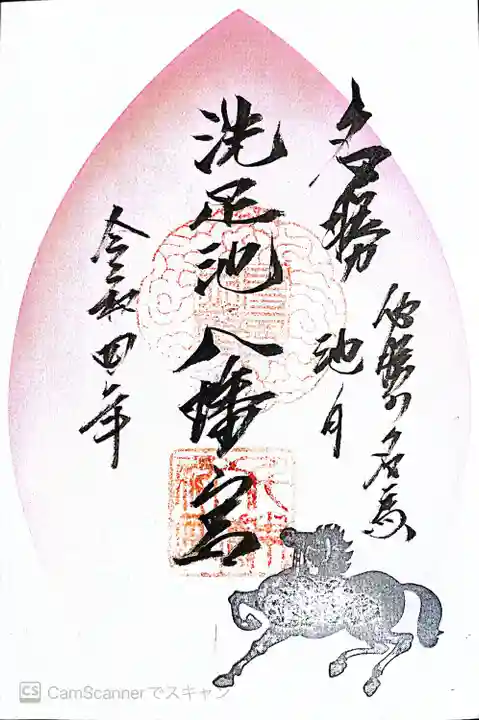 名勝
必勝の名馬
池月
洗足池八幡宮
令和四年
CS CamScannerでスキャン